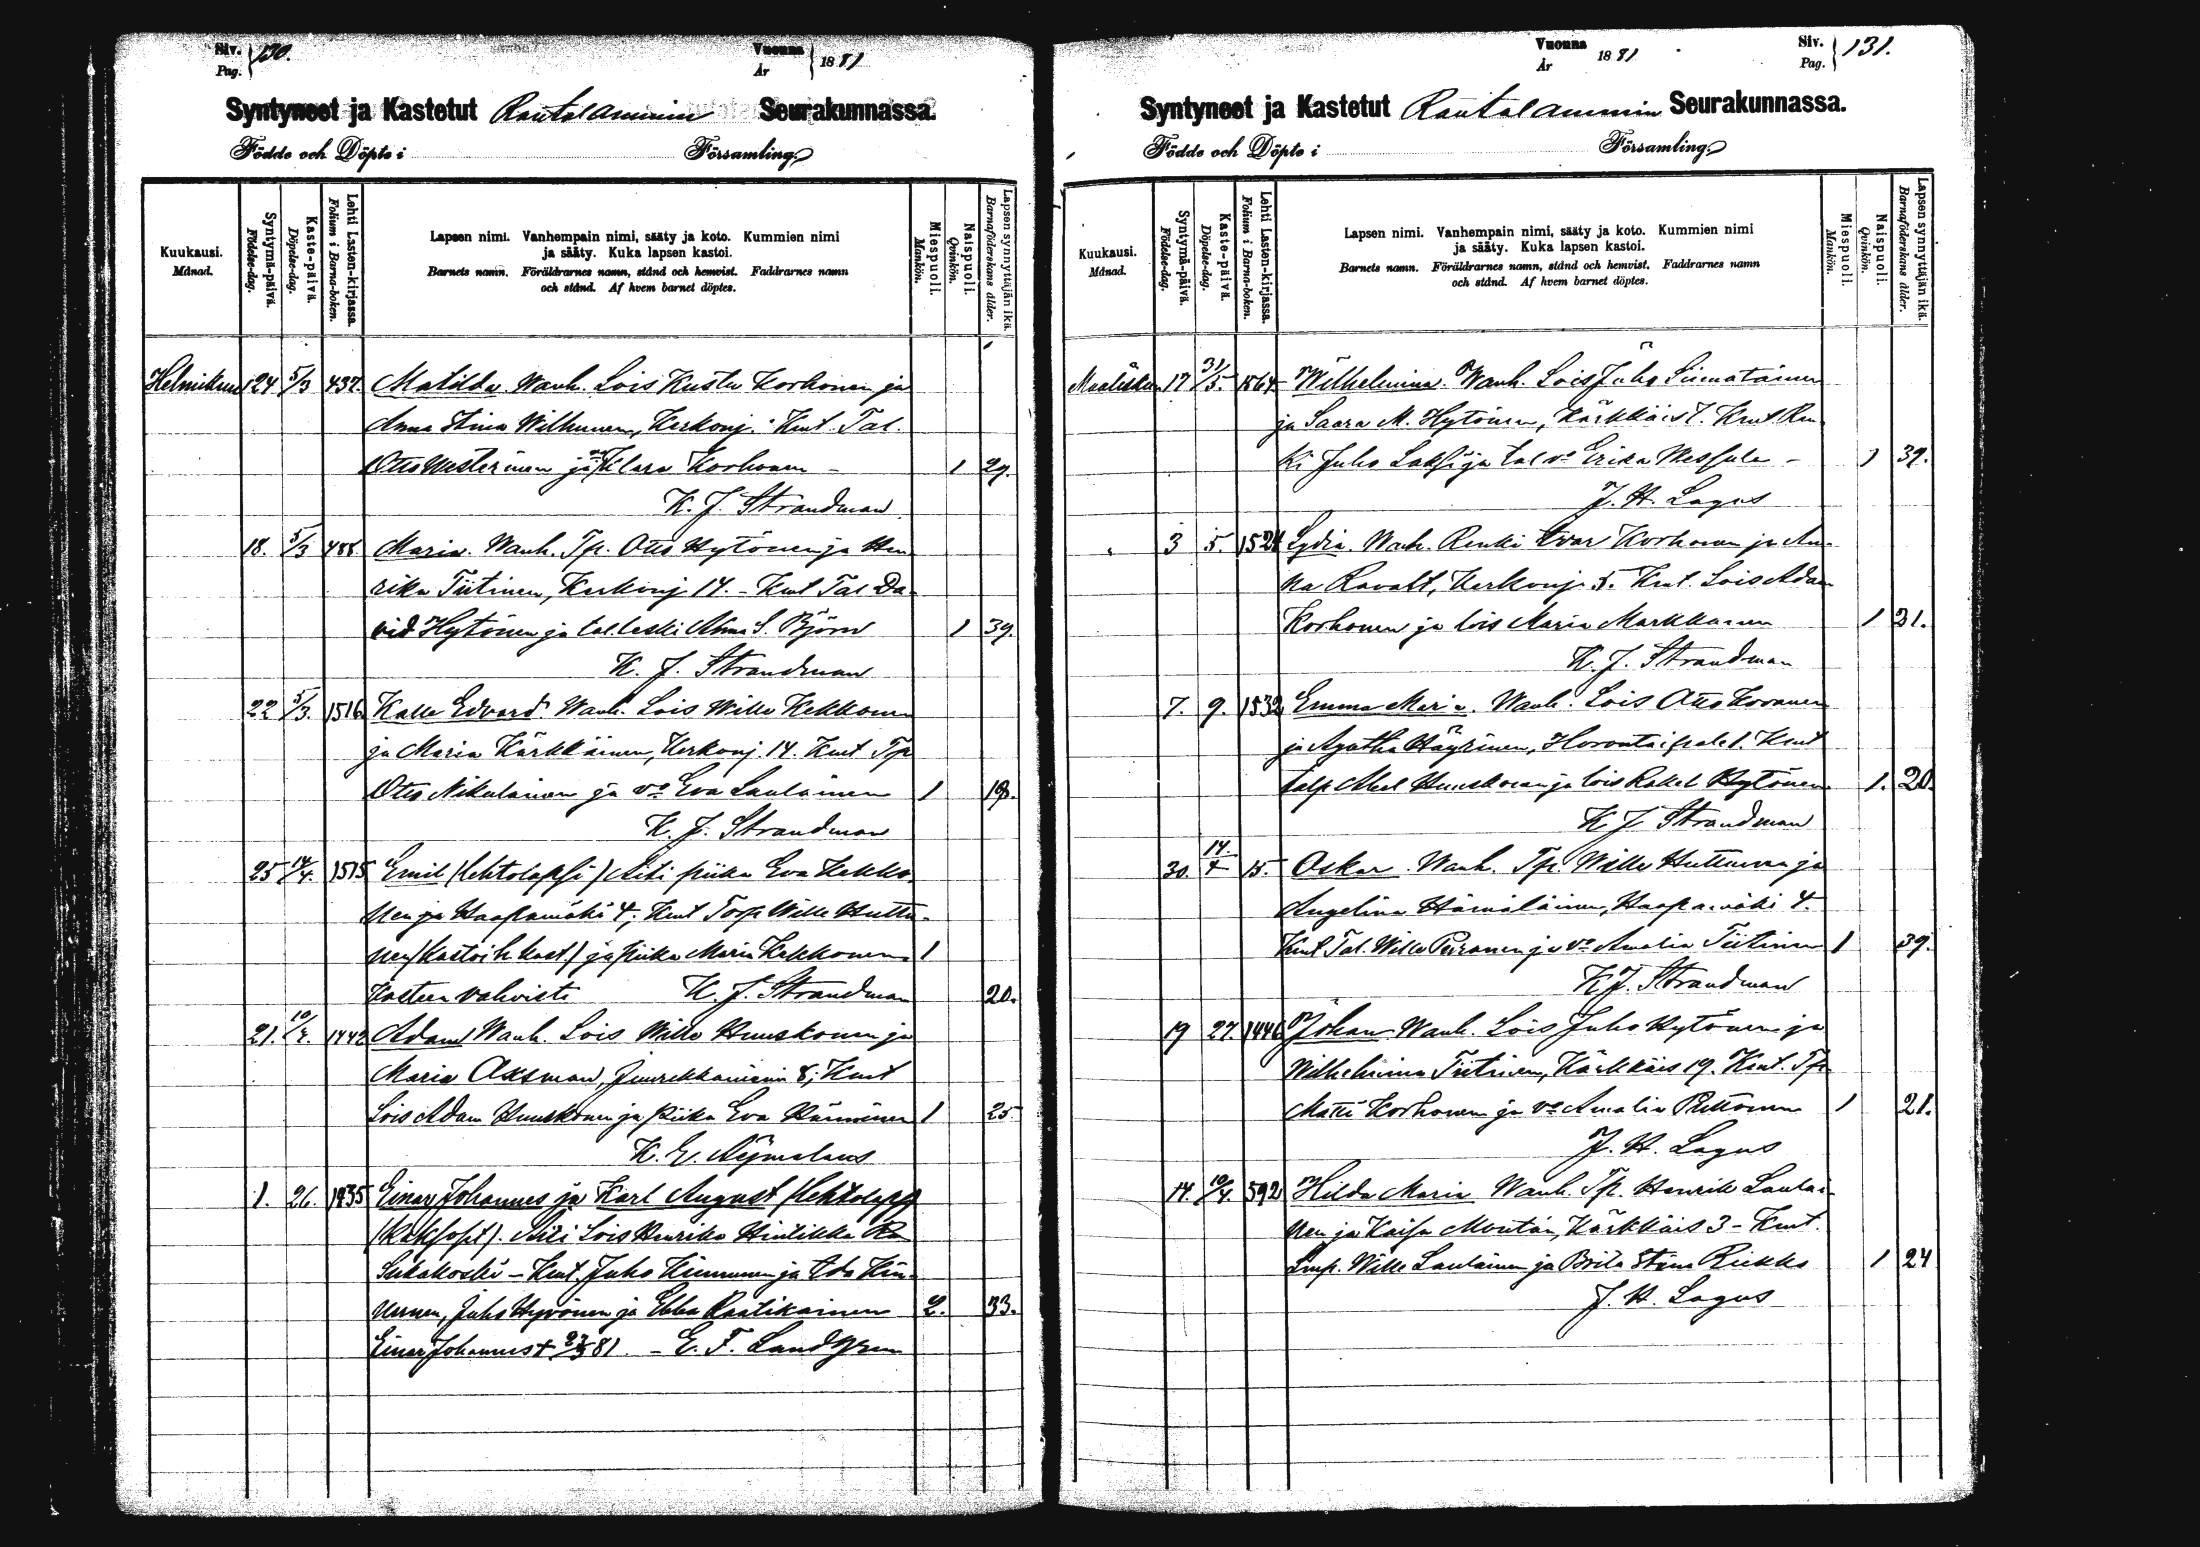 Siv. Pag. 130. Vuonna År 1881
Syntyneet ja Kastetut Rautalammin Seurakunnassa.
Födde och Döpte i Församling.
Kuukausi. Månad.
Syntymä-päivä. Födelse-dag.
Kaste-päivä. Döpelse-dag.
Lehti Lasten-kirjassa. Folium i Barna-boken.
Lapsen nimi. Vanhempain nimi, sääty ja koto. Kummien nimi
ja sääty. Kuka lapsen kastoi.
Barnets namn. Föräldrarnes namn, stånd och hemvist. Faddrarnes namn
och stånd. Af hvem barnet döptes.
Miespuoli. Mankön.
Naispuoli. Qvinkön.
Lapsen synnyttäjän ikä. Barnaföderskans ålder.
Helmikuu 24 5/3 437. Matilda. Wanh. Lois Kusta Korhonen ja
Anna Stina Wilhunen, Kerkonj. Kmt. Tal.
Otto Westerinen ja Klara Korhonen - 1 29.
K. J. Strandman
18. 5/3 488. Maria. Wanh. Tp. Otto Hytönen ja Hen
rika Tiitinen, Kerkonj 14. - Kmt Tal Da
vid Hytönen ja tal. leski Anna S. Björn 1 39.
K. J. Strandman
22 5/3. 1516 Kalle Edvard. Wanh. Lois Wille Kekkonen
ja Maria Kärkkäinen, Kerkonj. 14. Kmt Tp
Otto Nikulainen ja vo Eva Laulainen 1 19.
K. J. Strandman
25 14/4. 1515 Emil (lehtolapsi) Äiti piika Eva Kekko-
nen ja Haapamäki 4; Kmt Torp Wille Huttu-
nen (kastoi h. kast.) ja piika Maria Kekkonen 1
kasteen vahvisti K. J. Strandman 20.
21. 10/4. 1442 Adam Wanh. Lois Wille Huuskonen ja
Maria Axman, 8; Kmt
Lois Adam Huuskonen ja piika Eva Hänninen 1 25.
K. E.
1. 26. 1935 Einar Johannes ja Karl August (lehtolapsi
(Kaksoset). Äiti Lois Henrika Hintikka
- Kmt. Juho Kinnunen ja Ida Kin-
nunen, Juho Hyvönen ja Ebba Raatikainen 2. 33.
Einar Johannes + 27/3 81. - E. F. Landgren
Vuonna År 1881 Siv. Pag. 131.
Syntyneet ja Kastetut Rautalammin Seurakunnassa.
Födde och Döpte i Församling.
Kuukausi. Månad.
Syntymä-päivä. Födelse-dag.
Kaste-päivä. Döpelse-dag.
Lehti Lasten-kirjassa. Folium i Barna-boken.
Lapsen nimi. Vanhempain nimi, sääty ja koto. Kummien nimi
ja sääty. Kuka lapsen kastoi.
Barnets namn. Föräldrarnes namn, stånd och hemvist. Faddrarnes namn
och stånd. Af hvem barnet döptes.
Miespuoli. Mankön.
Naispuoli. Qvinkön.
Lapsen synnyttäjän ikä. Barnaföderskans ålder.
Maalisku 17 31/5. 1564 Wilhelmina. Wanh. Lois Juho Siimatainen
ja Saara M. Hytönen, Kärkkäis 7. Kmt Ren
ki Juho Laksi ja tal vo Erika Wessula - 1 39.
J. H. Lagus
3 5. 1524 Lydia. Wanh. Renki Ivar Korhonen ja An-
na Ravatt, Kerkonj 5. Kmt. Lois Adam
Korhonen ja lois Maria Markkanen 1 21.
K. J. Strandman
7. 9. 1532 Emma Maria. Wanh. Lois Otto Kovanen
ja Agatha Häyrinen, Horontaipale 1. Kmt
talp Abel Huuskonen ja lois Rakel Hytönen 1. 20.
K. J. Strandman
30. 14./4 15. Oskar. Wanh. Tp. Wille Huttunen ja
Angelina Hämäläinen, Haapamäki 4.
Kmt Tal. Wille Piiranen ja vo Amalia Tiitinen 1 39.
K. J. Strandman
19 27. 1446 Johan Wanh. Lois Juho Hytönen ja
Wilhelmina Tiitinen, Kärkkäis 19. Kmt. Tp
Matti Korhonen ja vo Amalia Puttonen 1 21.
J. H. Lagus
14 10/4. 592 Hilda Maria Wanh. Tp. Henrik Laulai-
nen ja Kaisa Montin, Kärkkäis 3 - Kmt.
Wille Laulainen ja Brita Stina Riekko 1 24
J. H. Lagus